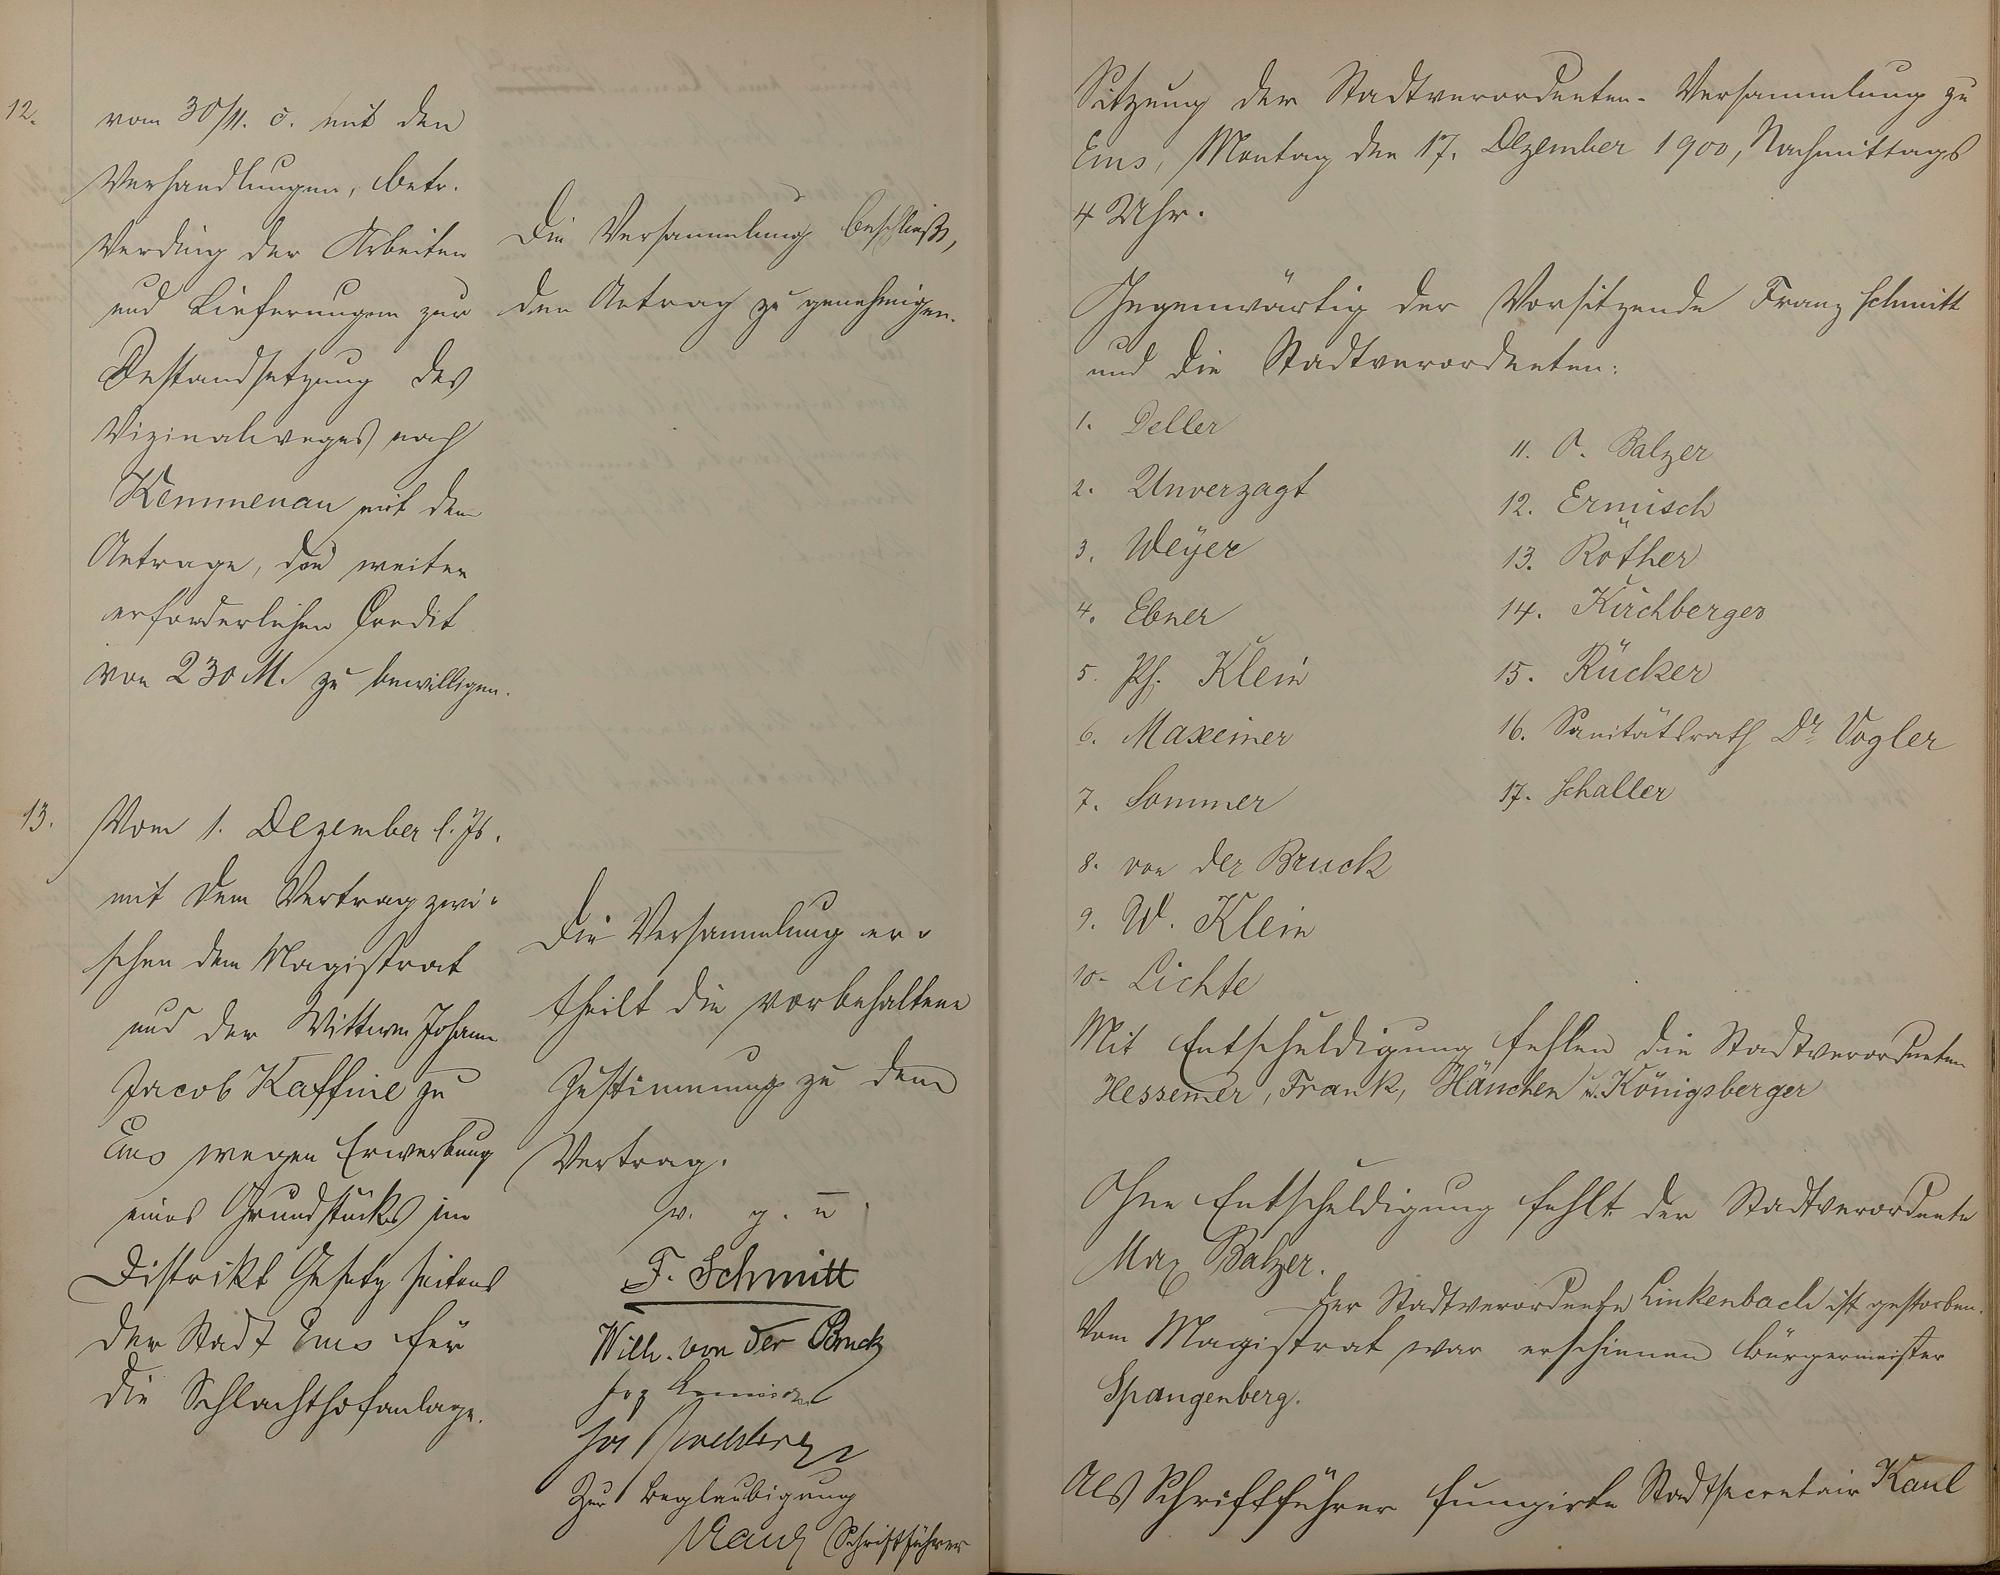 12.
vom 30/11. c. mit den
Verhandlungen, betr.
Verding der Arbeiten
und Lieferungen zur
Instandsetzung des
Vizinalweges nach
Kemmenau mit dem
Antrage, den weiter
erforderlichen Credit
von 230 M. zu bewilligen.
Die Versammlung beschließt,
den Antrag zu genehmigen.
13.
Vom 1. Dezember l. Js.
mit dem Vertrag zwi-
schen dem Magistrat
und der Wittwe Johann
Jacob Kaffine zu
Ems wegen Erwerbung
eines Grundstücks im
Distrikt Gesetz seitens
der Stadt Ems für
die Schlachthofanlage.
Die Versammlung er-
theilt die vorbehaltene
Zustimmung zu dem
Vertrag.
v. g. u.
F. Schmitt
Wilh. von der Bruck
Jos
Zur Beglaubigung
Kaul Schriftführer
Sitzung der Stadtverordneten-Versammlung zu
Ems, Montag den 17. Dezember 1900, Nachmittags
4 Uhr.
Gegenwärtig der Vorsitzende Franz Schmitt
und die Stadtverordneten:
1. Deller
2. Unverzagt
3. Weyer
4. Ebner
5. Ph. Klein
6. Maxeiner
7. Sommer
8. von der Bruck
9. W. Klein
10. Lichte
11. O. Balzer
12. Ermisch
13. Röther
14. Kirchberger
15. Rücker
16. Sanitätsrath Dr. Vogler
17. Schaller
Mit Entschuldigung fehlen die Stadtverordneten
Hessemer, Frank, Hänchen u. Königsberger
Ohne Entschuldigung fehlt der Stadtverordnete
Max Balzer.
Der Stadtverordnete Linkenbach ist gestorben.
Vom Magistrat war erschienen Bürgermeister
Spangenberg.
Als Schriftführer fungirte Stadtsecretair Kaul